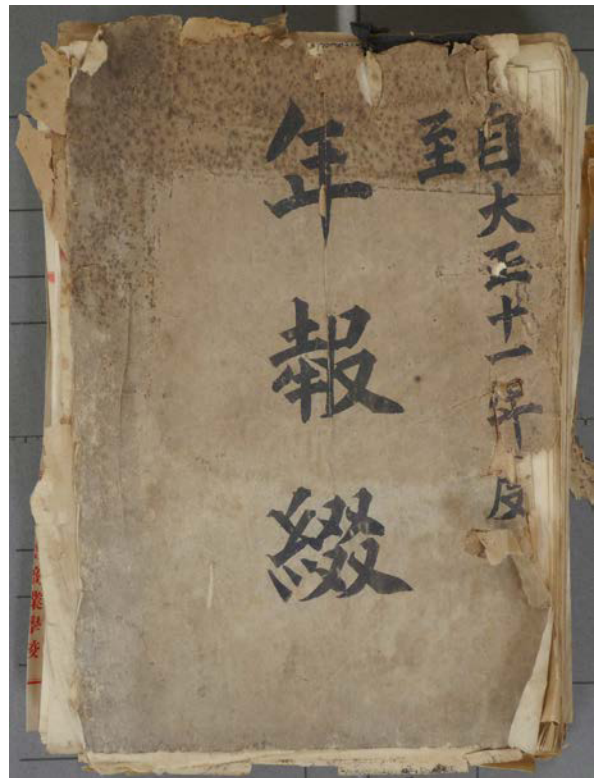 自大正十一年度
至
年報綴